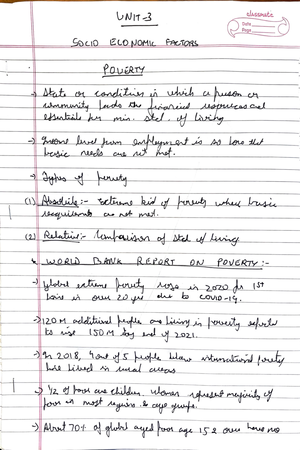 classmate
Date
Page
UNIT-3
SOCIO ECONOMIC FACTORS
POVERTY
→ State or condition in which a person or
community lacks the financial resources and
essentials for min. std. of living
→ Income level from employment is so low that
basic needs are not met.
→ Types of poverty
(1) Absolute:- extreme kid of poverty where basic
requirements are not met.
(2) Relative:- Comparison of std of living
WORLD BANK REPORT ON POVERTY:-
→ Global extreme poverty rose in 2020 for 1st
time in over 20 yrs due to COVID-19.
→ 120 M additional people are living in poverty expected
to rise 150 M by end of 2021.
→ In 2018, 4 out of 5 people below international poverty
line lived in rural areas
→ 1/2 of poor are children. Women represent majority of
poor in most regions & age groups.
→ About 70% of global aged poor age 15 & over have no